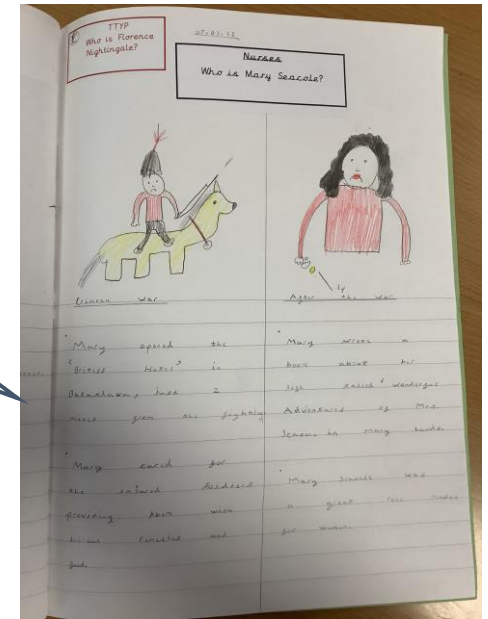 TTYP
Who is Florence
Nightingale?
Nurses
Who is Mary Seacole?
Crimean war
Mary opened the
'British Hotel' in
Balaklava, just 2
miles from the fighting
Mary cared for
the injured soldiers
providing them with
and
food.
After the war
Mary wrote a
book about her
life called 'Wonderful
Adventures of Mrs.
Seacole in Many Lands.
Mary Seacole was
a great role model
for women.